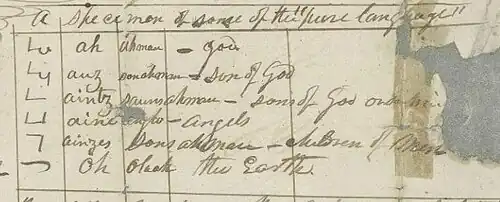 A specimen of some of the "pure language"
ah ahman – god
auz sonahman – son of God
aintz saunsahman – sons of God
aine anglo – angels
ainzes Sonsahman – children of men
oh olah the Earth